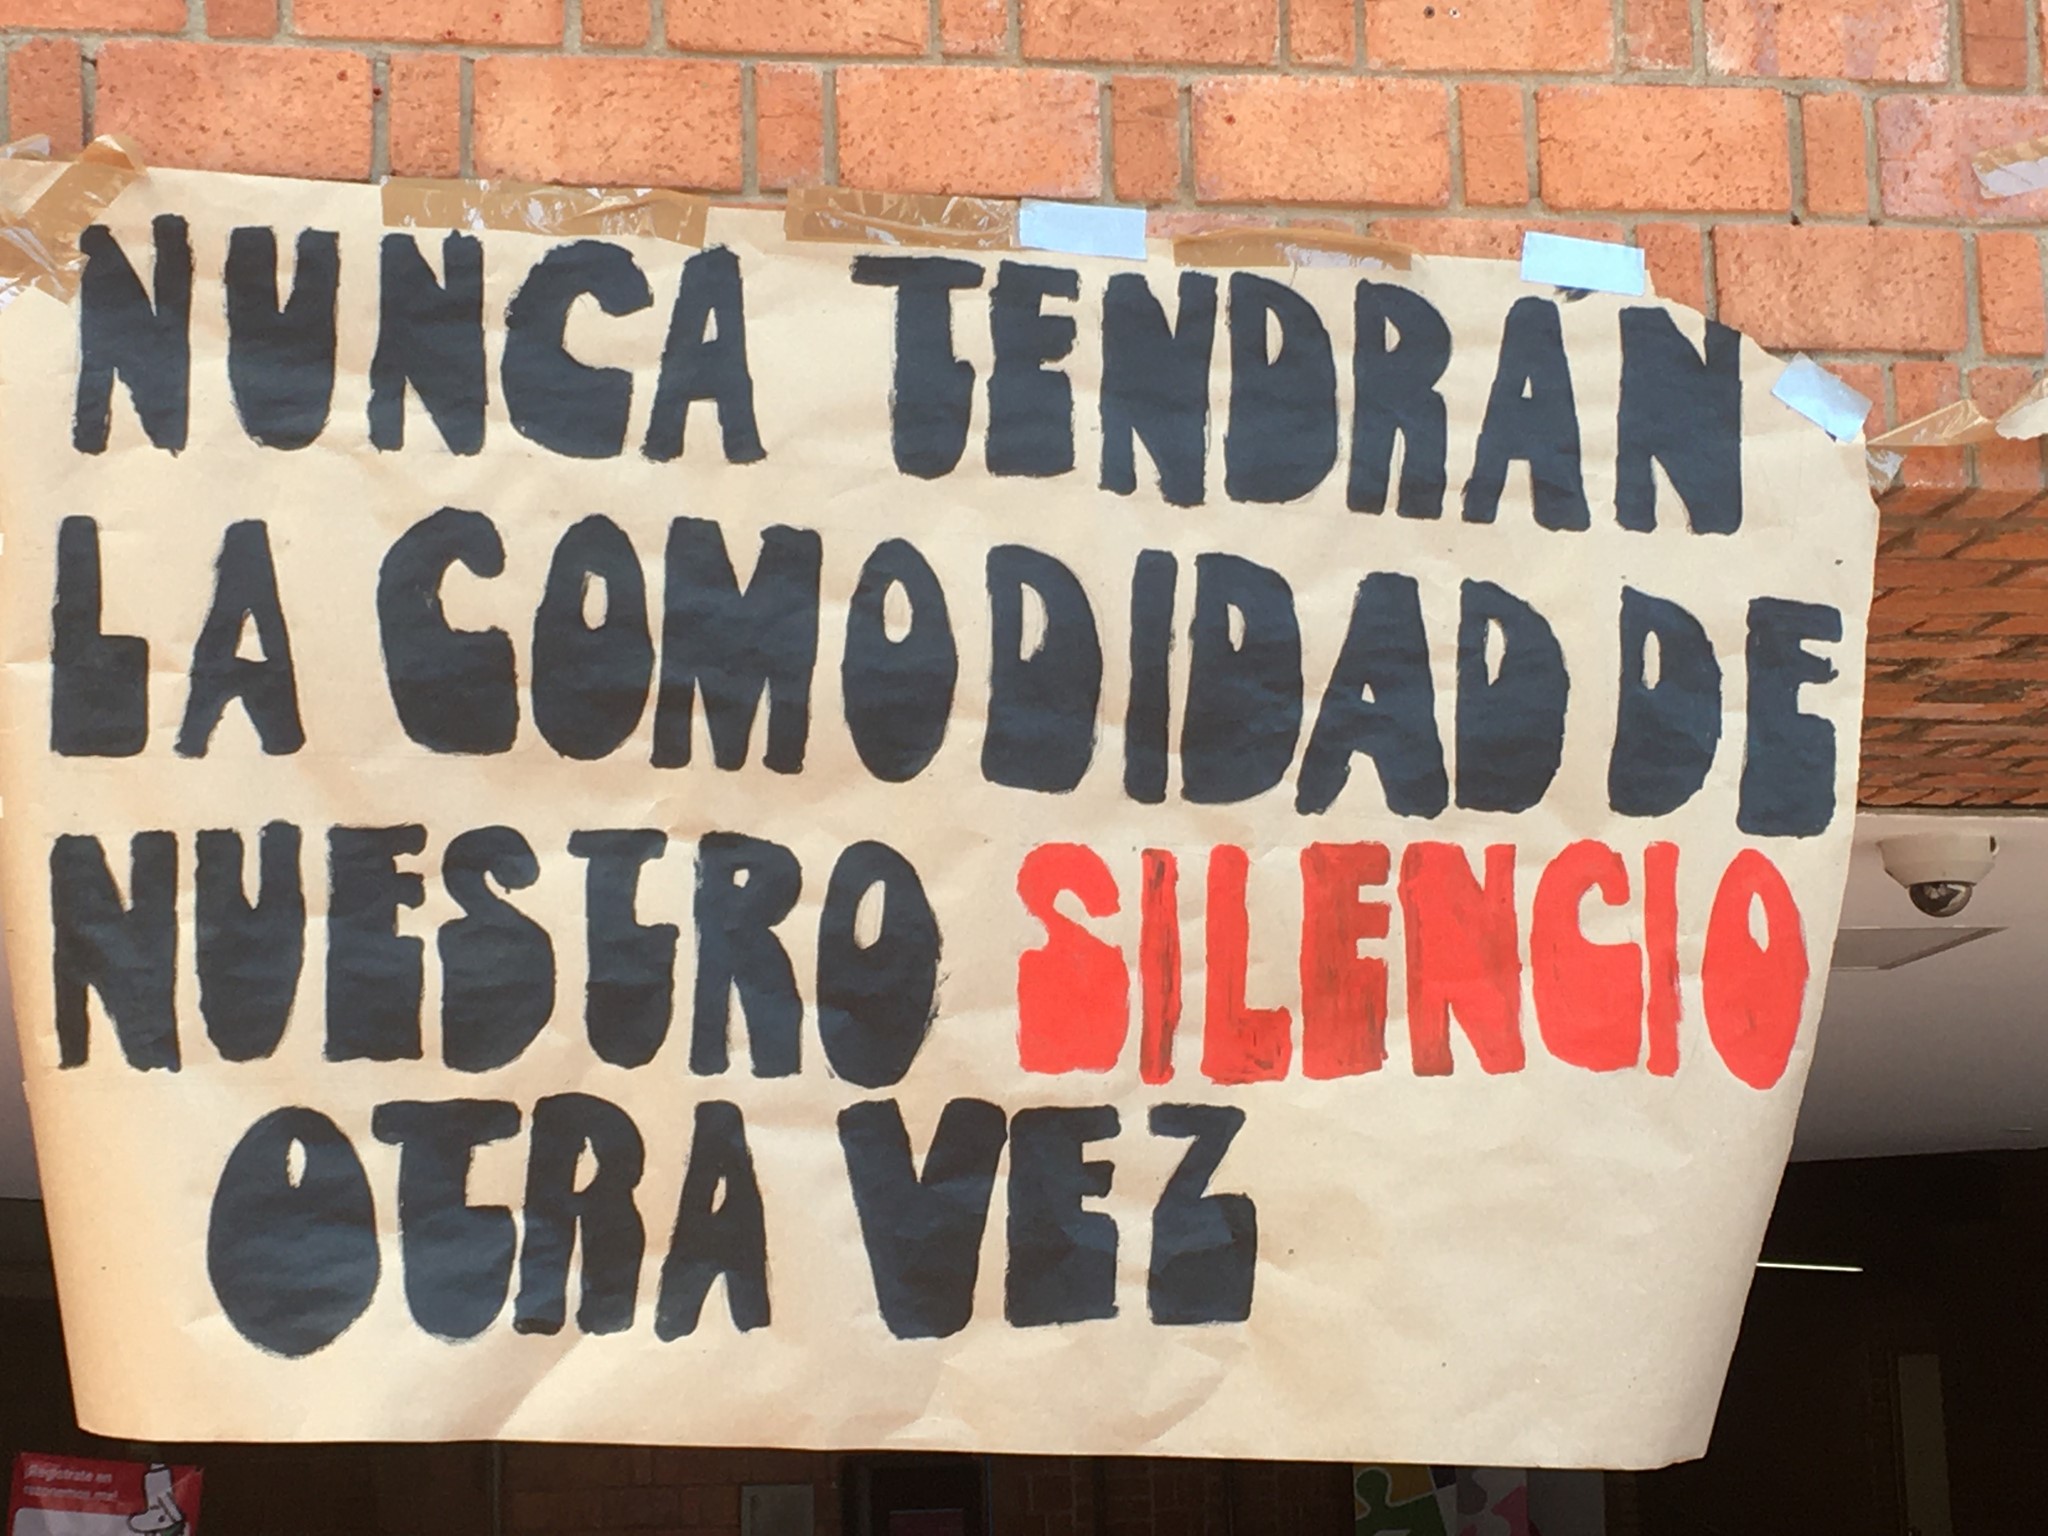 NUNCA TENDRÁN
LA COMODIDAD DE
NUESTRO SILENCIO
OTRA VEZ
Regístrate en